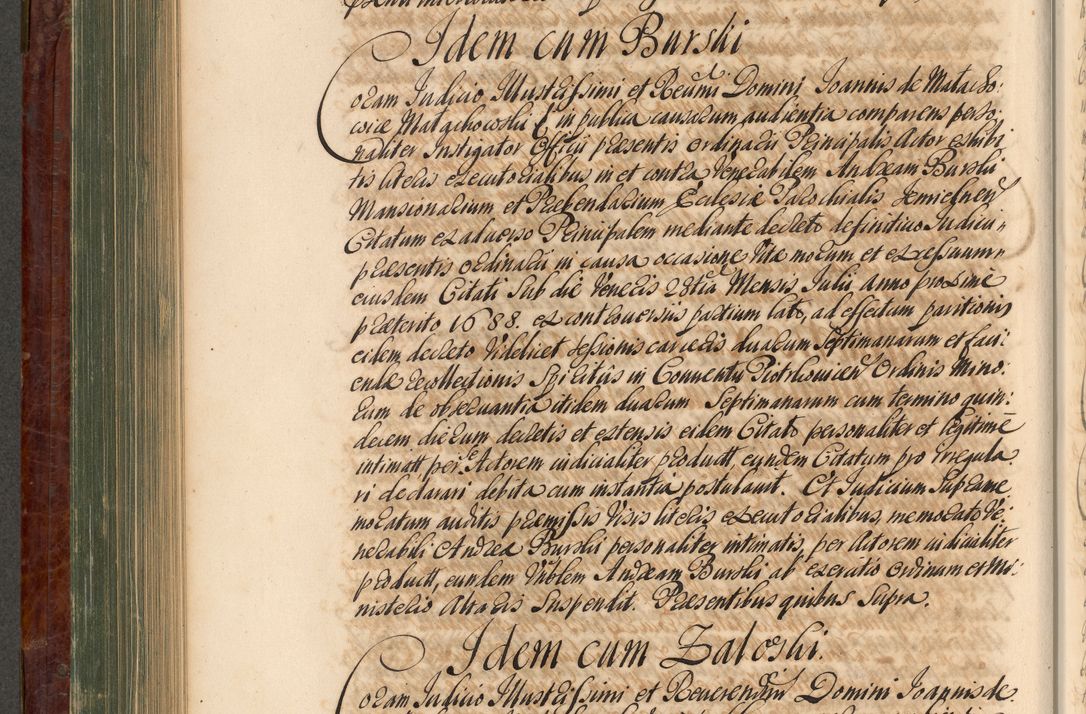 Idem cum Burski
Coram Judicio Illustrissimi et Reverendissimi Domini Joannis de Malacho
wice Małachowski &c in publica causarum audientia comparens perso
naliter Instigator Officii praesentis ordinarii Principalis Actor exhibi
tis literis executorialibus in et contra Venerabilem Andream Burski
Mansionarium et Praebendarium Ecclesiae Parochialis
Citatum ex adverso Principalem mediante decreto definitivo Judicii
praesentis ordinarii in causa occasione Vitae morum et excessuum
eiusdem Citati sub die Veneris 28tia Mensis Julii anno proxime
praeterito 1688. ex controversiis partium lato, ad effectum paritionis
eidem decreto videlicet sessionis carceris duarum septimanarum et faci:
endae recollectionis Spiritus in Conventu Piotrkovien Ordinis Mino:
rum de observantia itidem duarum Septimanarum cum termino quin:
decem dierum decretis et extensis eidem Citato personaliter et legitime
intimatt per Actorem iudicialiter productt, eundem Citatum pro irregula
ri declarari debita cum instantia postulavit. Et Judicium supreme
moratum auditis praemissis visis literis executorialibus, memorato Ve:
nerabili Andrea Burski personaliter intimatis, per Actorem iudicialiter
productt, eundem Vnblem Andream Burski ab exercitio Ordinum et Mi:
nisterio Altaris Suspendit. Praesentibus quibus supra.
Idem cum Zaloski.
Coram Judicio Illustrissimi et Reverendssimi Domini Joannis de